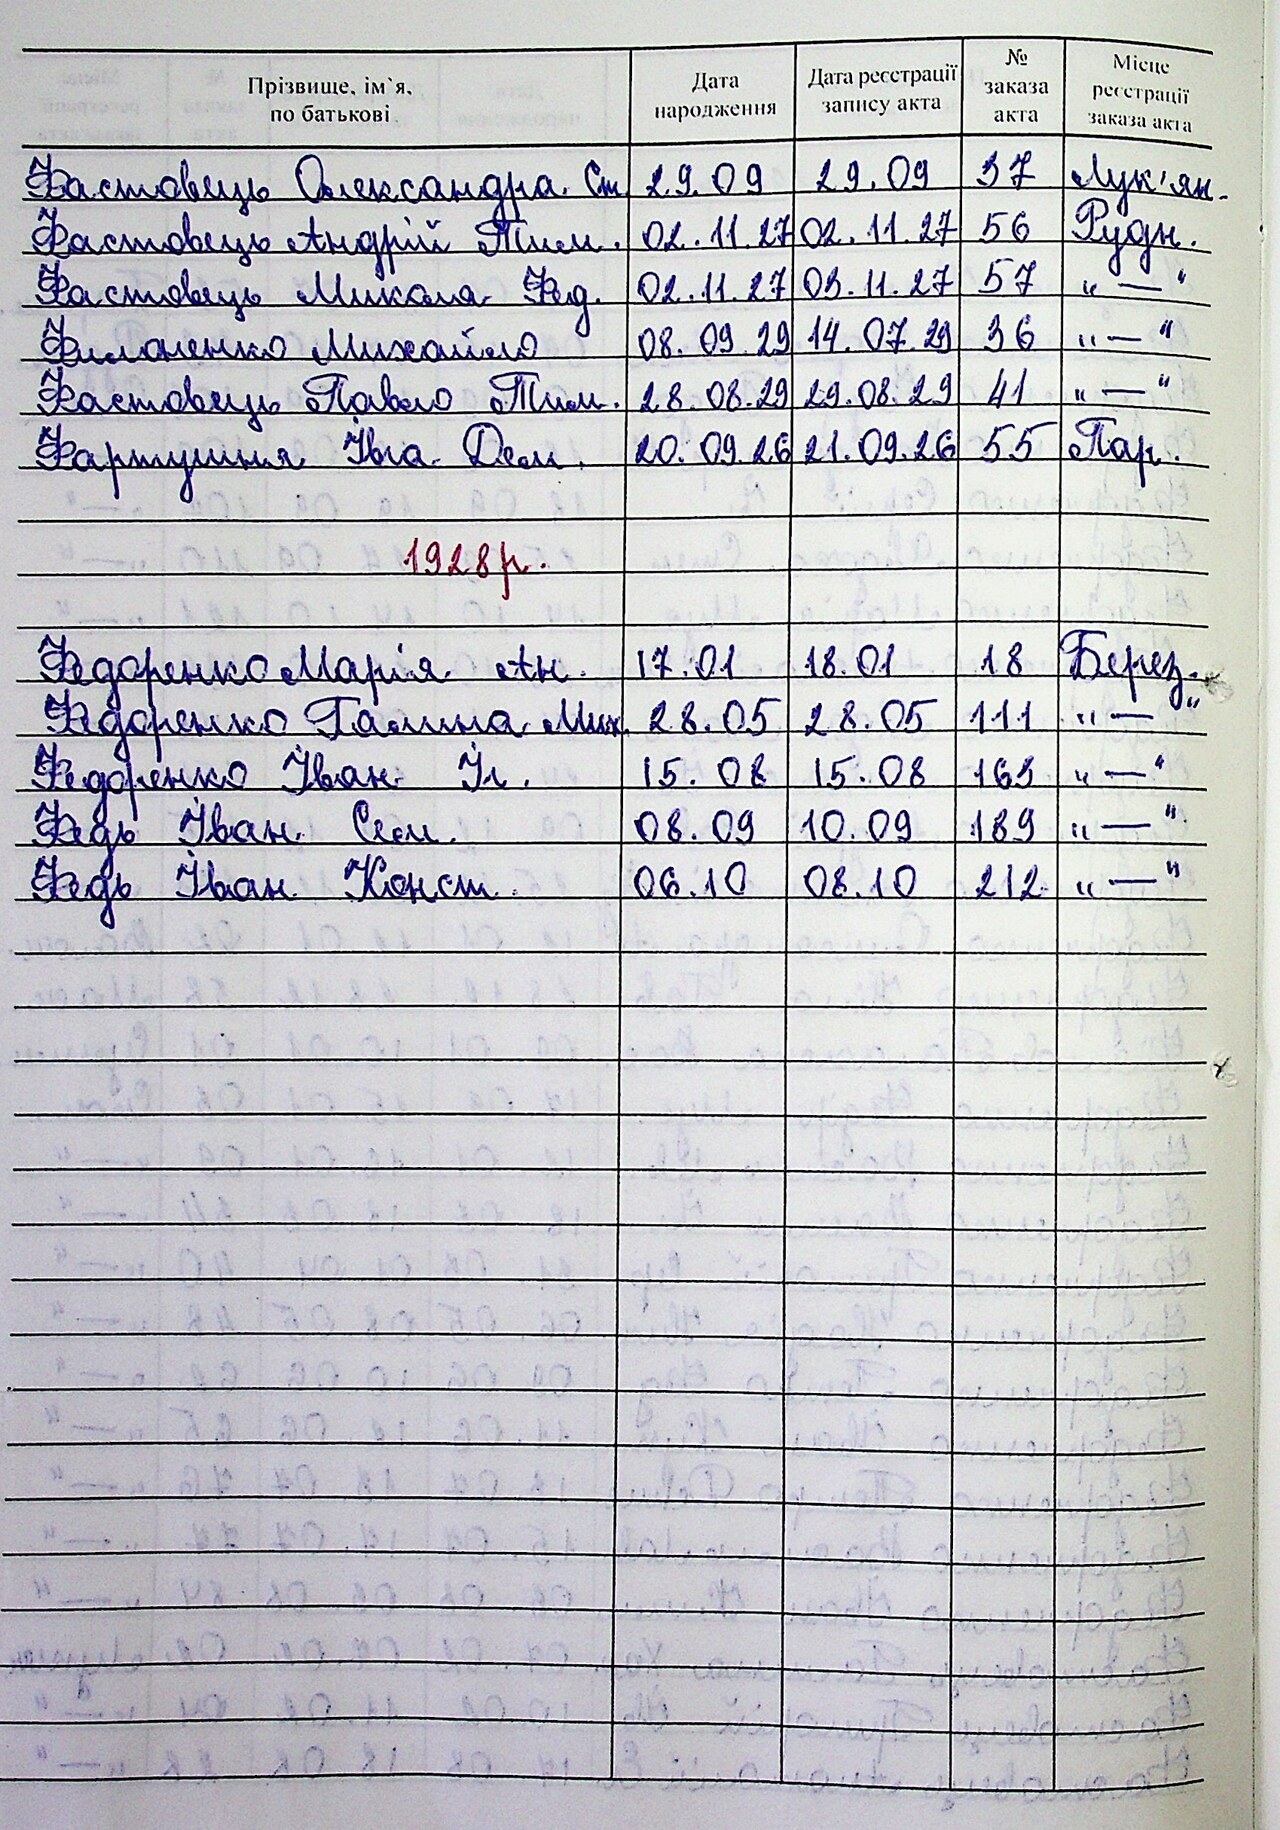 Прізвище, ім`я, по батькові Дата народження Дата реєстрації запису акта № заказа акта Місце реєстрації заказа акта
Фастовець Олександра Ст. 29.09 29.09 37 Лук'ян.
Фастовець Андрій Тим. 02.11.27 02.11.27 56 Рудн.
Фастовець Микола Фед. 02.11.27 03.11.27 57 „—“
Филоненко Михайло 08.09.29 14.07.29 36 „—“
Фастовець Павло Тим. 28.08.29 29.08.29 41 „—“
Фартушня Івга Дем. 20.09.26 21.09.26 55 Пар.
1928р.
Федоренко Марія Ан. 17.01 18.01 18 Берез.
Федоренко Галина Мих. 28.05 28.05 111 „—“
Федоренко Іван Іл. 15.08 15.08 163 „—“
Федь Іван Сем. 08.09 10.09 189 „—“
Федь Іван Конст. 06.10 08.10 212 „—“